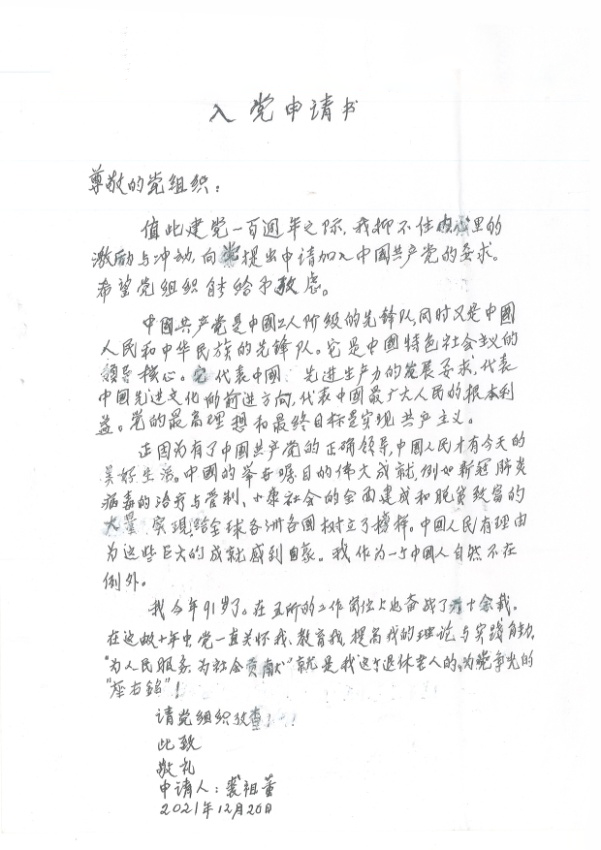 入党申请书
尊敬的党组织：
值此建党一百週年之际，我抑不住内心里的
激励与冲动，向党提出申请加入中国共产党的要求。
希望党组织能给予考虑。
中國共产党是中國工人阶级的先锋队，同时又是中國
人民和中华民族的先锋队。它是中國特色社会主义的
领导核心。它代表中國先进生产力的发展要求，代表
中國先进文化的前进方向，代表中國最广大人民的根本利
益。党的最高理想和最终目标是实现共产主义。
正因为有了中國共产党的正确领导，中國人民才有今天的
美好生活。中國的举世瞩目的伟大成就，例如新冠肺炎
病毒的治疗与管制、小康社会的全面建成和脱贫致富的
大量实现，给全球各洲各國树立了榜样。中國人民有理由
为这些巨大的成就感到自豪。我作为一个中國人自然不在
例外。
我今年91岁了。在五所的工作岗位上也奋战了十余载。
在这数十年中，党一直关怀我、教育我，提高我的理论与实践
“为人民服务，为社会贡献”就是我这个退休老人的，为党争光的
“座右铭”！
请党组织考查！
此致
敬礼
申请人：裘祖
2021年12月26日